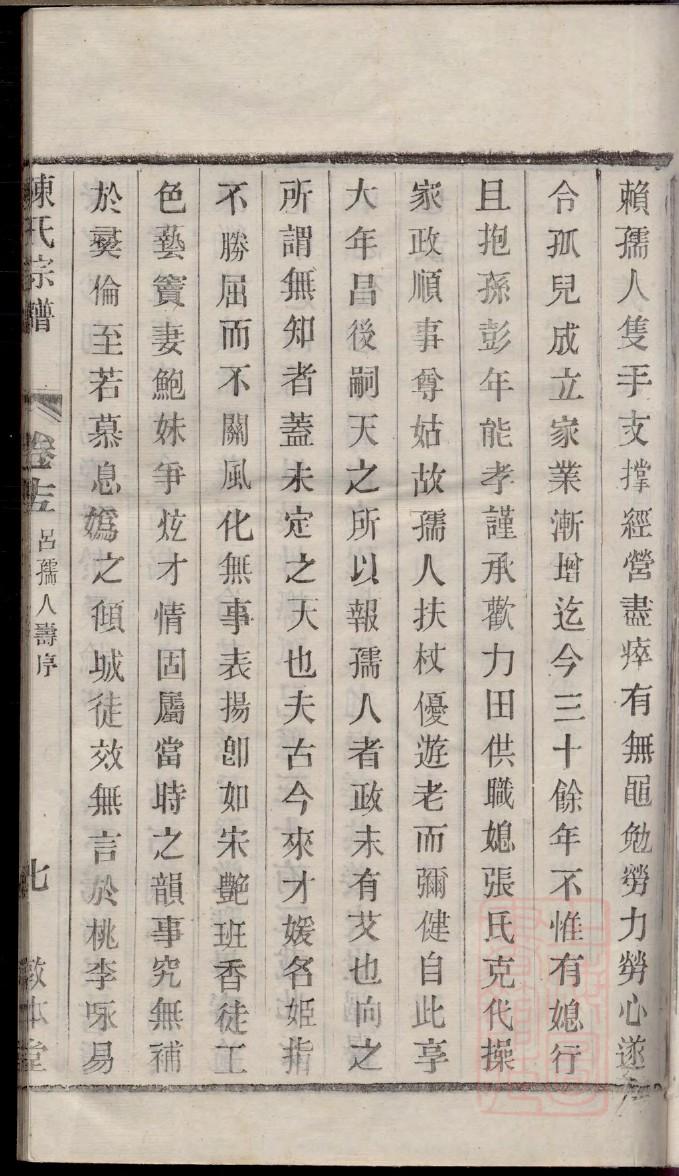 賴孺人隻手支撐經營盡瘁有無黽勉勞力勞心遂
令孤兒成立家業漸增迄今三十餘年不惟有媳行
且抱孫彭年能孝謹承歡力田供職媳張氏克代操
家政順事尊姑故孺人扶杖優遊老而彌健自此享
大年昌後嗣天之所以報孺人者政未有艾也向之
所謂無知者蓋未定之天也夫古今來才媛名姬指
不勝屈而不關風化無事表揚卽如宋艷班香徒工
色藝竇妻鮑妹爭炫才情固屬當時之韻事究無補
於彛倫至若慕息媯之傾城徒效無言於桃李咏易
陳氏宗譜
卷
呂孺人壽序
七
敦本堂